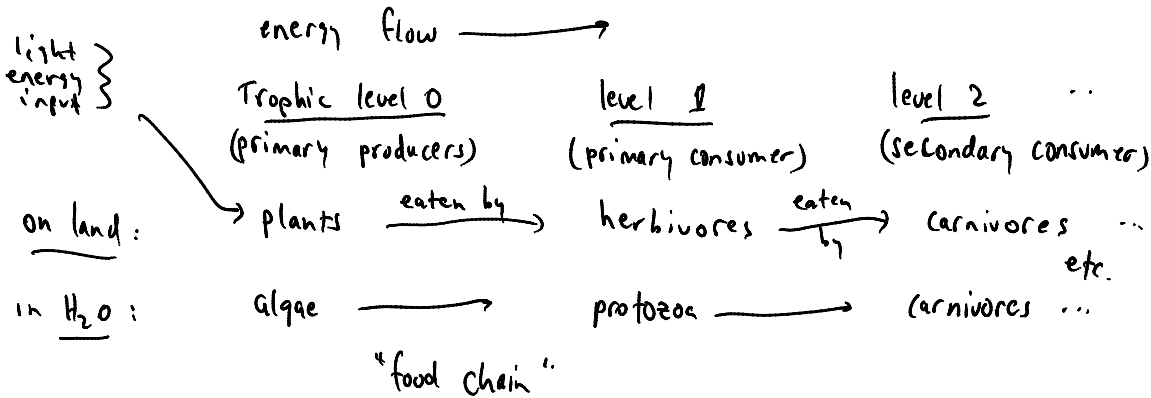 energy flow
light
energy
input
Trophic level 0 level 1 level 2 ..
(primary producers) (primary consumer) (secondary consumer)
on land: plants eaten by herbivores eaten by carnivores ...
etc.
in H₂O: algae protozoa carnivores ...
"food chain"